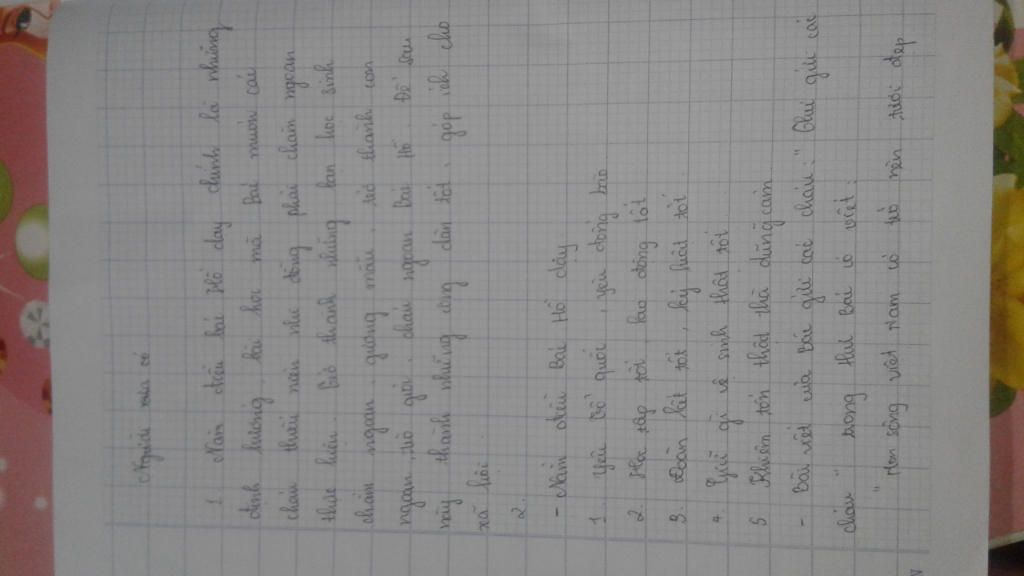 Người mua có
1. Năm điều bái Hồ dạy chính là những
định hướng, bài học mà Bái muốn cái
cháu thiếu niên nhi đồng phải chăm ngoan
thực hiện. Để thành những bạn học sinh
chăm ngoan, gương mẫu, trở thành con
ngoan, trò giỏi, cháu ngoan Bái Hồ. Để sau
này thành những công dân tốt, góp ích cho
xã hội
2.
- Năm điều Bái Hồ dạy.
1. Yêu tổ quối, yêu đồng bào
2. Học tập tốt, lao động tốt
3. Đoàn kết tốt, kỷ luật tốt
4. Giữ gìn vệ sinh thật tốt
5 Khiêm tốn thật thà dũng cảm
- Bài viết của Bái gửi các cháu: " Thư gửi các
cháu " trong thư Bái có viết:
" Non sông việt Nam có trở nên tươi đẹp